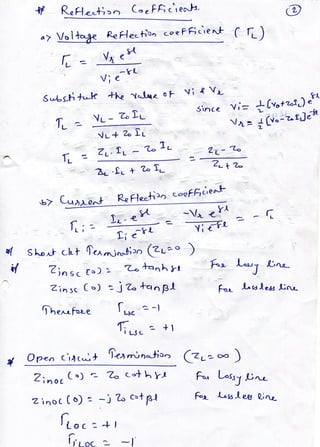 # Reflection Coefficients.
2
a> Voltage Reflection coefficient ( ΓL )
ΓL = Vr e^γl / Vi e^-γl
Substitute the value of Vi & Vr
since Vi = 1/2 (Vo+ZoIL) e^γl
ΓL = VL - ZoIL / VL + ZoIL
Vr = 1/2 (Vo-ZoIL) e^-γl
ΓL = ZL.IL - ZoIL / ZL.IL + ZoIL = ZL-Zo / ZL+Zo
b> Current Reflection coefficient
ΓLi = Ir e^γl / Ii e^-γl = -Vr e^γl / Vi e^-γl = - ΓL
Short ckt Termination (ZL=0)
Zinsc (o) = Zo tanh γl For lossy line
Zinsc (o) = jZo tan βl For lossless line
Therefore ΓLSC = -1
ΓiLSC = +1
* Open circuit Termination (ZL=∞)
Zinoc (o) = Zo coth γl For Lossy line
Zinoc (o) = -jZo cot βl For lossless line
ΓLOC = +1
ΓiLOC = -1